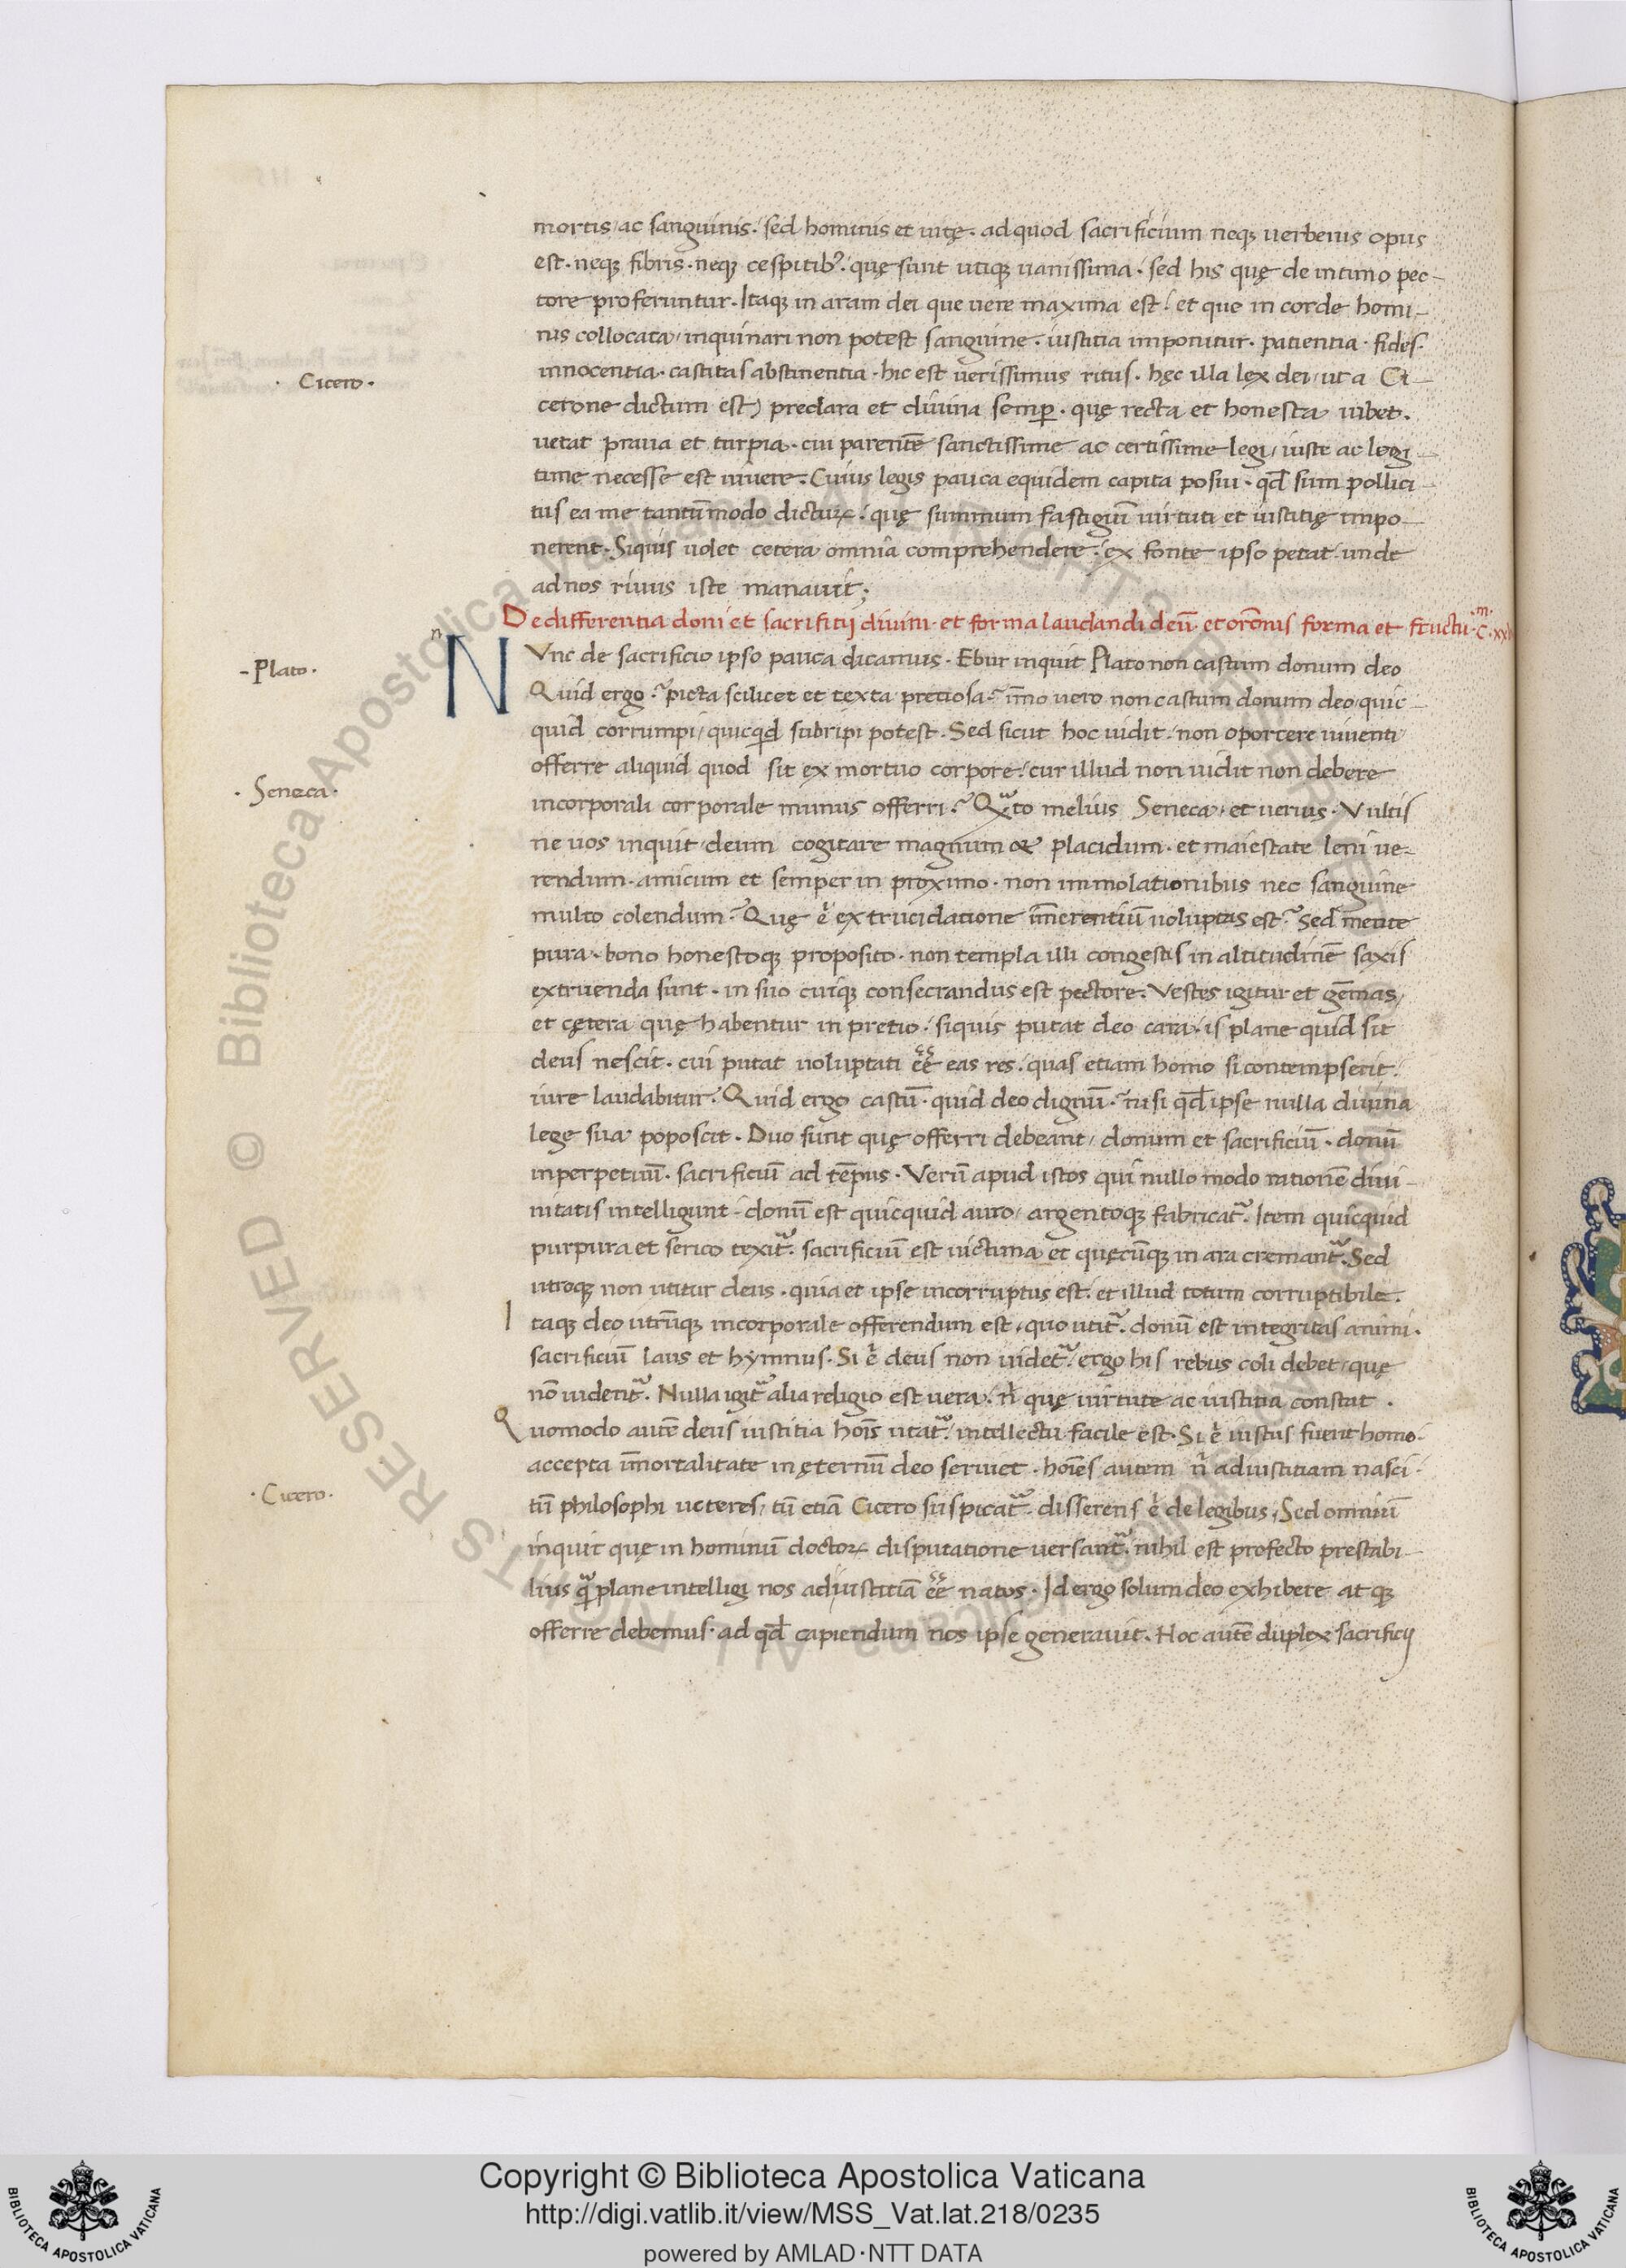 mortis ac sanguinis. sed hominis et uitę. ad quod sacrificium neqꝫ uerbenis opus
est. neqꝫ fibris. neqꝫ cespitibꝰ. quę sunt utiqꝫ uanissima. sed his quę de intimo pec-
tore proferuntur. Itaqꝫ in aram dei que uere maxima est. et que in corde homi-
nis collocata inquinari non potest sanguine. iustitia imponitur. patientia. fides.
innocentia. castitas abstinentia. hic est uerissimus ritus. hęc illa lex dei, ut a Ci-
· Cicero ·
cerone dictum est) preclara et diuina semꝑ. quę recta et honesta iubet.
uetat praua et turpia. cui parentē sanctissime ac certissime legi, iuste ac legi-
time necesse est uiuere. Cuius legis pauca equidem capita posui. qđ sum pollici-
tus ea me tantūmodo dicturꝝ. quę summum fastigiū uirtuti et iustitię impo-
nerent. Siquis uolet cetera omnia comprehendere. ex fonte ipso petat. unde
ad nos riuus iste manauit;
De differentia doni et sacrifitij diuini. et forma laudandi deū. et orōnis forma et fructu. c.
n
NVnc de sacrificio ipso pauca dicamus. Ebur inquit Plato non castum donum deo
- Plato ·
Quid ergo? picta scilicet et texta pretiosa? īmo uero non castum donum deo quic-
quid corrumpi, quicqd subripi potest. Sed sicut hoc uidit. non oportere uiuenti
offerre aliquid quod sit ex mortuo corpore. cur illud non uidit non debere
· Seneca ·
incorporali corporale munus offerri? Qᵃto melius Seneca, et uerius. Vultis
ne uos inquit deum cogitare magnum & placidum. et maiestate leni ue-
rendum. amicum et semper in proximo. non immolationibus nec sanguine
multo colendum? Quę ē ex trucidatione īmerentiū uoluptas est? Sed mente
pura. bono honestoqꝫ proposito. non templa illi congestis in altitudinē saxis
extruenda sunt. in suo cuiqꝫ consecrandus est pectore. Vestes igitur et gēmas,
et cętera quę habentur in pretio. siquis putat deo cara. is plane quid sit
deus nescit. cui putat uoluptati ēē eas res. quas etiam homo si contempserit.
iure laudabitur. Quid ergo castū. quid deo dignū. nisi qđ ipse nulla diuina
lege sua poposcit. Duo sunt quę offerri debeant, donum et sacrificiū. donū
in perpetuū. sacrificiū ad tēpus. Verū apud istos qui nullo modo rationē diui-
nitatis intelligunt. donū est quicquid auro, argentoqꝫ fabricatᷓ. Item quicquid
purpura et serico texitᷓ. sacrificiū est uictima et quęcūqꝫ in ara cremantᷓ. Sed
utroqꝫ non utitur deus. quia et ipse incorruptus est. et illud totum corruptibile.
Itaqꝫ deo utrūqꝫ incorporale offerendum est, quo utitᷓ. donū est integritas animi.
sacrificiū laus et hymnus. Si ē deus non uidetᷓ. ergo his rebus coli debet, quę
nō uidentᷓ. Nulla igitᷓ alia religio est uera, n̄ quę uirtute ac iustitia constat.
Quomodo autē deus iustitia hoīs utatᷓ. intellectu facile est. Si ē iustus fuerit homo.
accepta īmortalitate in ęternū deo seruiet. hoīes autem n̄ ad iustitiam nasci.
tū philosophi ueteres, tū etiā Cicero suspicatᷓ. disserens ē de legibus, Sed omniū
· Cicero ·
inquit quę in hominū doctorꝝ disputatione uersantᷓ. nihil est profecto prestabi-
lius qᷓ plane intelligi nos ad iustitiā ēē natos. Id ergo solum deo exhibere atqꝫ
offerre debemus. ad qđ capiendum nos ipse generauit. Hoc autē duplex sacrificij
Copyright © Biblioteca Apostolica Vaticana
http://digi.vatlib.it/view/MSS_Vat.lat.218/0235
powered by AMLAD·NTT DATA
BIBLIOTECA APOSTOLICA VATICANA
BIBLIOTECA APOSTOLICA VATICANA